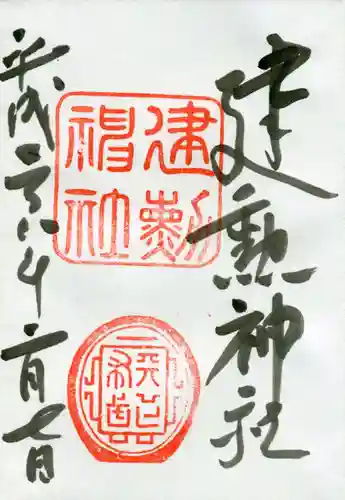 建勲神社
建勲
神社
平成二六年二月七日